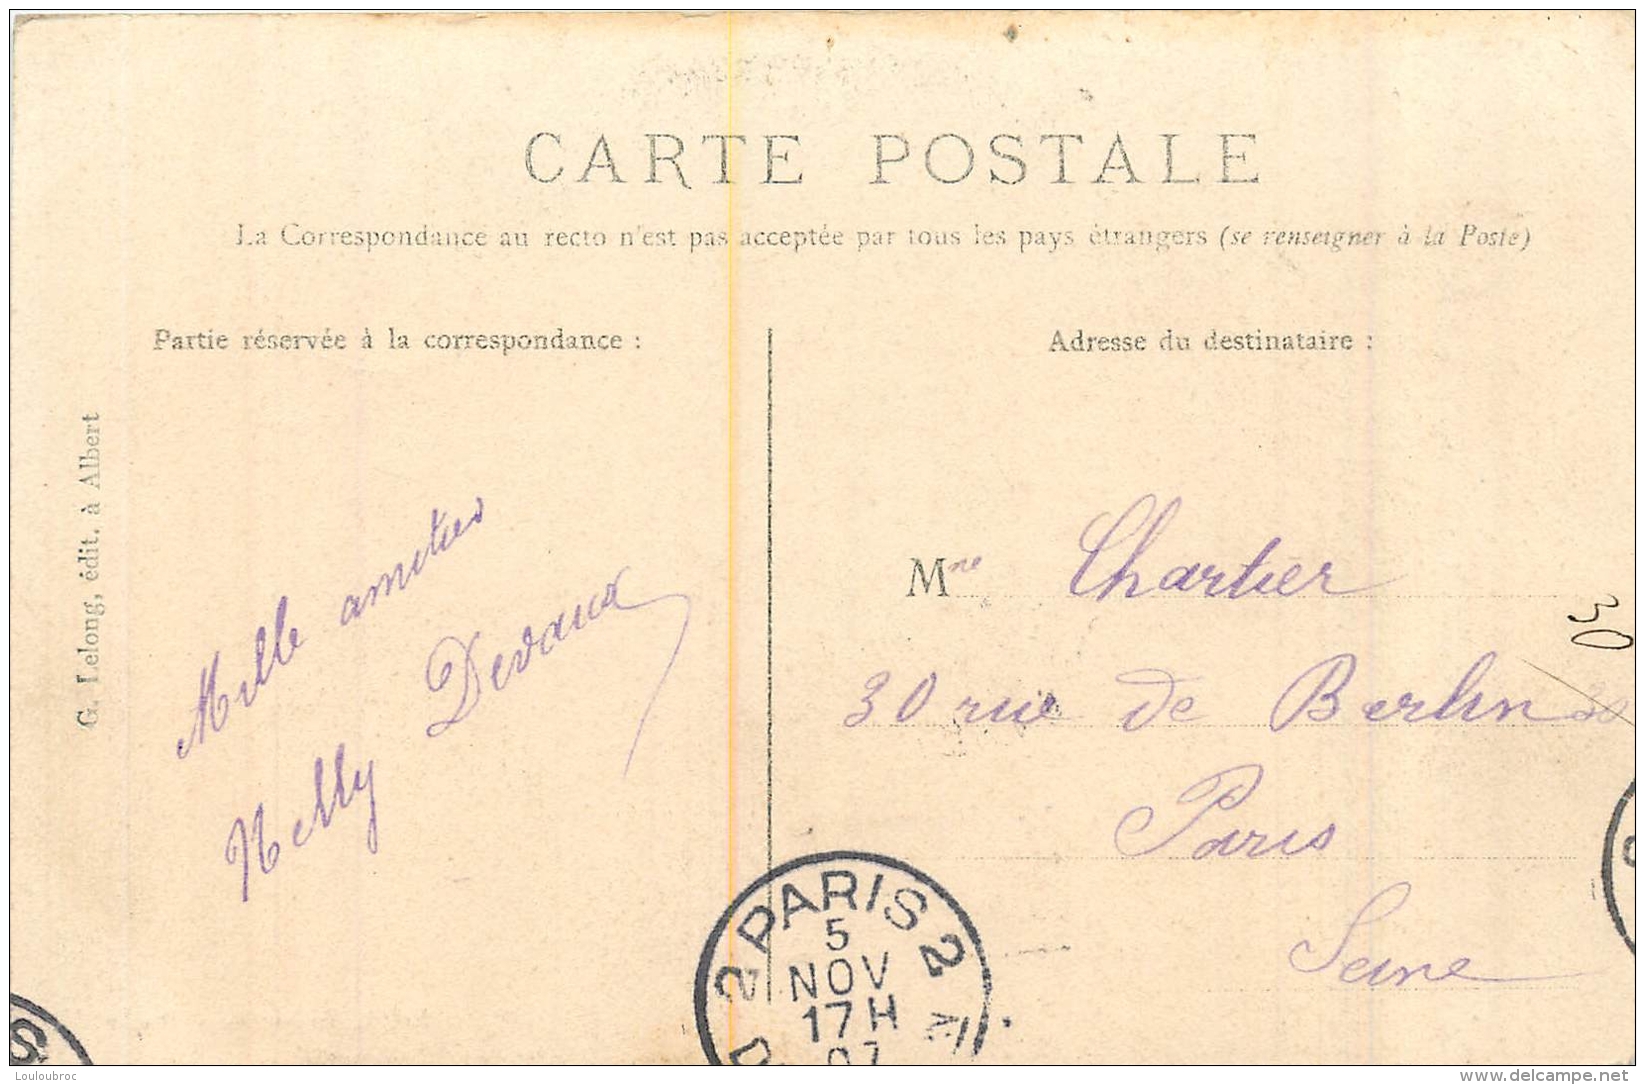 CARTE POSTALE
La Correspondance au recto n'est pas acceptée par tous les pays étrangers (se renseigner à la Poste)
Partie réservée à la correspondance :
Adresse du destinataire :
G. Lelong, édit. à Albert
Mille amitiés
Nelly Devaux
Mme Chartier
30 rue de Berlin
Paris
Seine
30
2 PARIS 2
5
NOV
17H
07
Louloubroc
www.delcampe.net